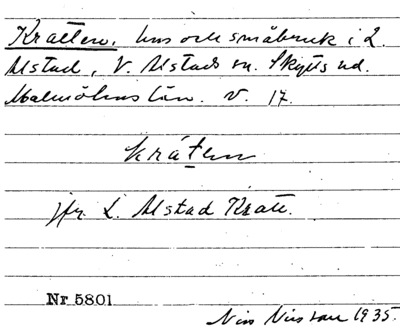 Kratten, hus och småbruk i L.
Alstad, V. Alstads sn. Skytts hd.
Malmöhus län. V. 17.
kráten
jfr L. Alstad Kratt.
Nr 5801
Nils Nilsson 1935.